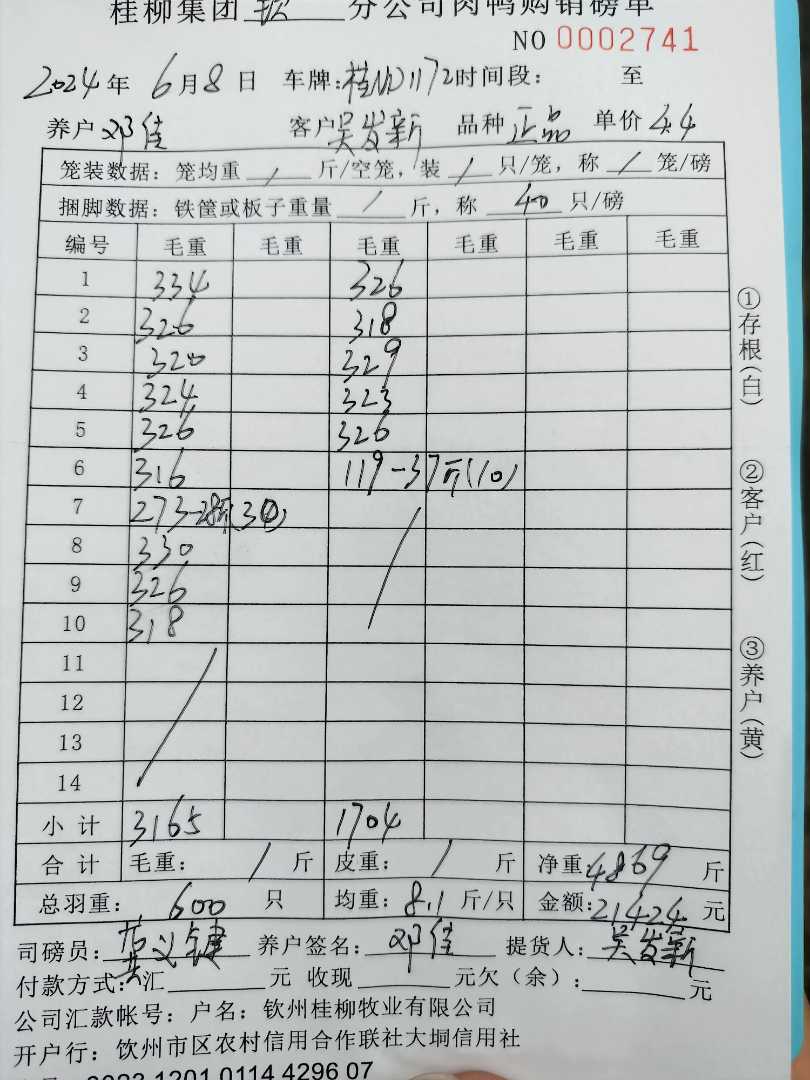 桂柳集团 钦 分公司肉鸭购销磅单
NO 0002741
2024年 6月8日 车牌:桂ND1172时间段: 至
养户 邓佳 客户 吴发新 品种 正品 单价 4.4
笼装数据: 笼均重 / 斤/空笼, 装 / 只/笼, 称 / 笼/磅
捆脚数据: 铁筐或板子重量 / 斤, 称 40 只/磅
编号 毛重 毛重 毛重 毛重 毛重 毛重
1 334 326
2 326 318
3 320 329
4 324 323
5 326 326
6 316 119-37斤(10)
7 273-28斤(30)
8 330
9 326
10 318
11
12
13
14
小计 3165 1704
合计 毛重: / 斤 皮重: / 斤 净重:4869 斤
总羽重: 600 只 均重: 8.1 斤/只 金额:21424 元
司磅员: 义键 养户签名: 邓佳 提货人: 吴发新
付款方式:汇 元 收现 元欠(余): 元
公司汇款帐号: 户名: 钦州桂柳牧业有限公司
开户行: 钦州市区农村信用合作联社大垌信用社
1201 0114 4296 07
①存根(白)
②客户(红)
③养户(黄)